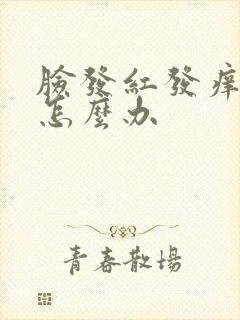 臉發紅發痒
怎麼办
青春散場